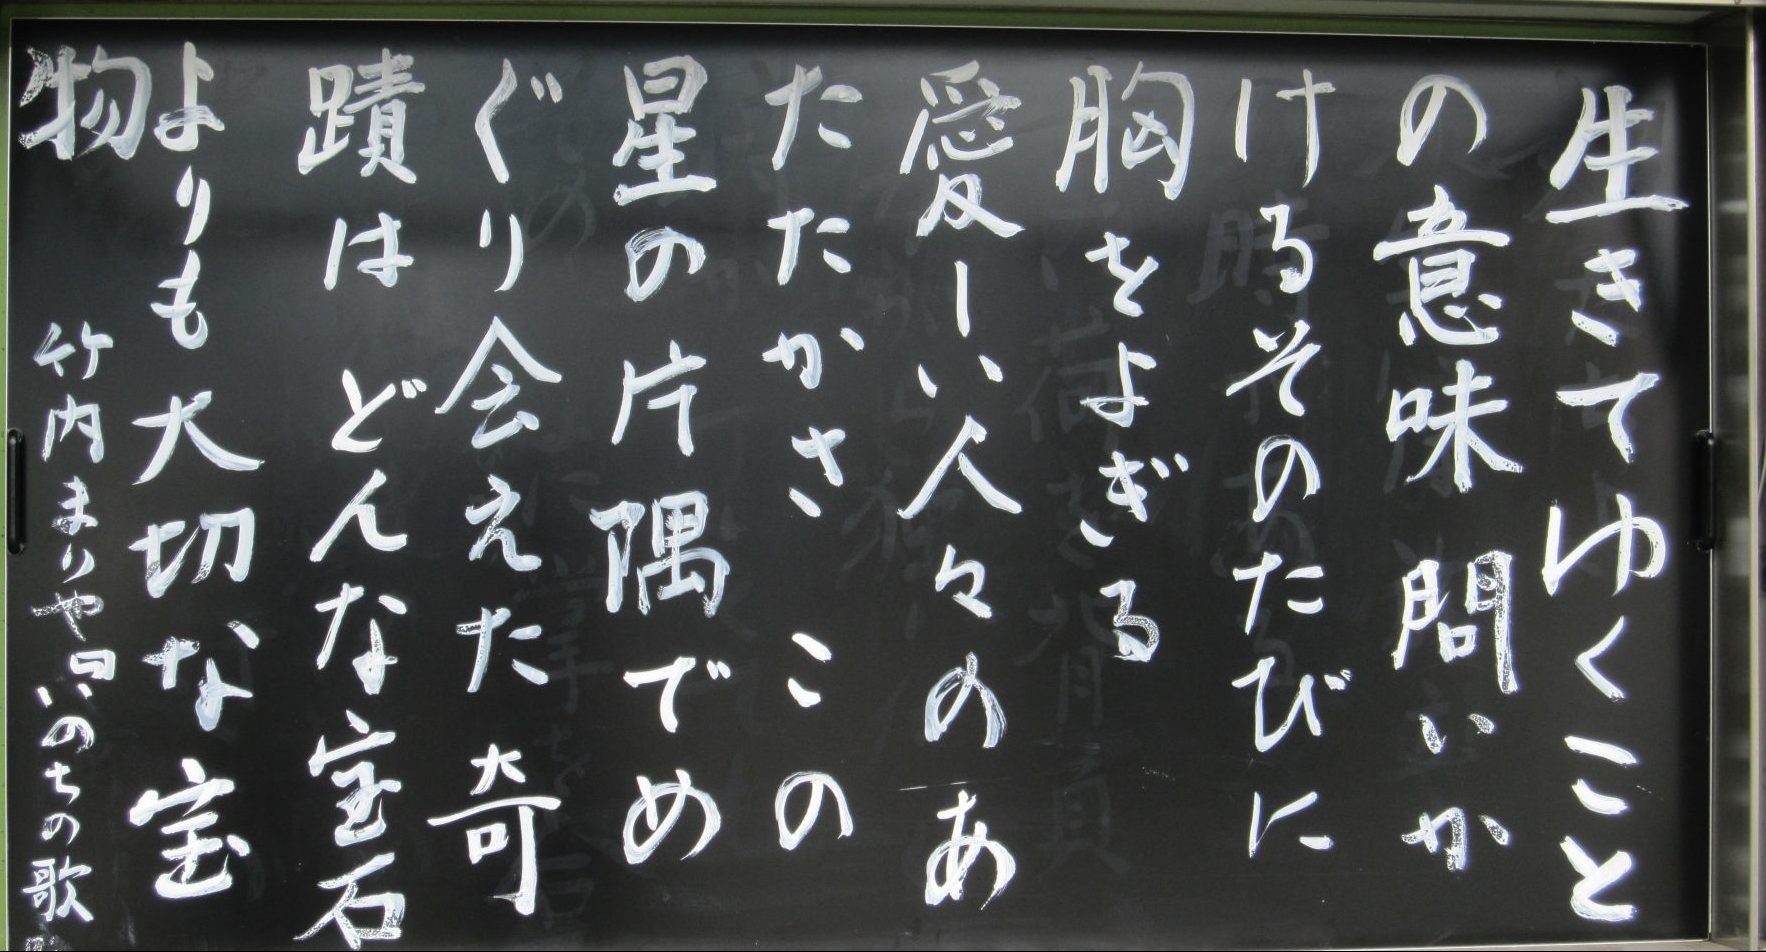 生きてゆくこと
の意味 問いか
けるそのたびに
胸をよぎる
愛しい人々のあ
たたかさ この
星の片隅でめ
ぐり会えた 奇
蹟は どんな宝石
よりも大切な宝
物
竹内まりや 「いのちの歌」